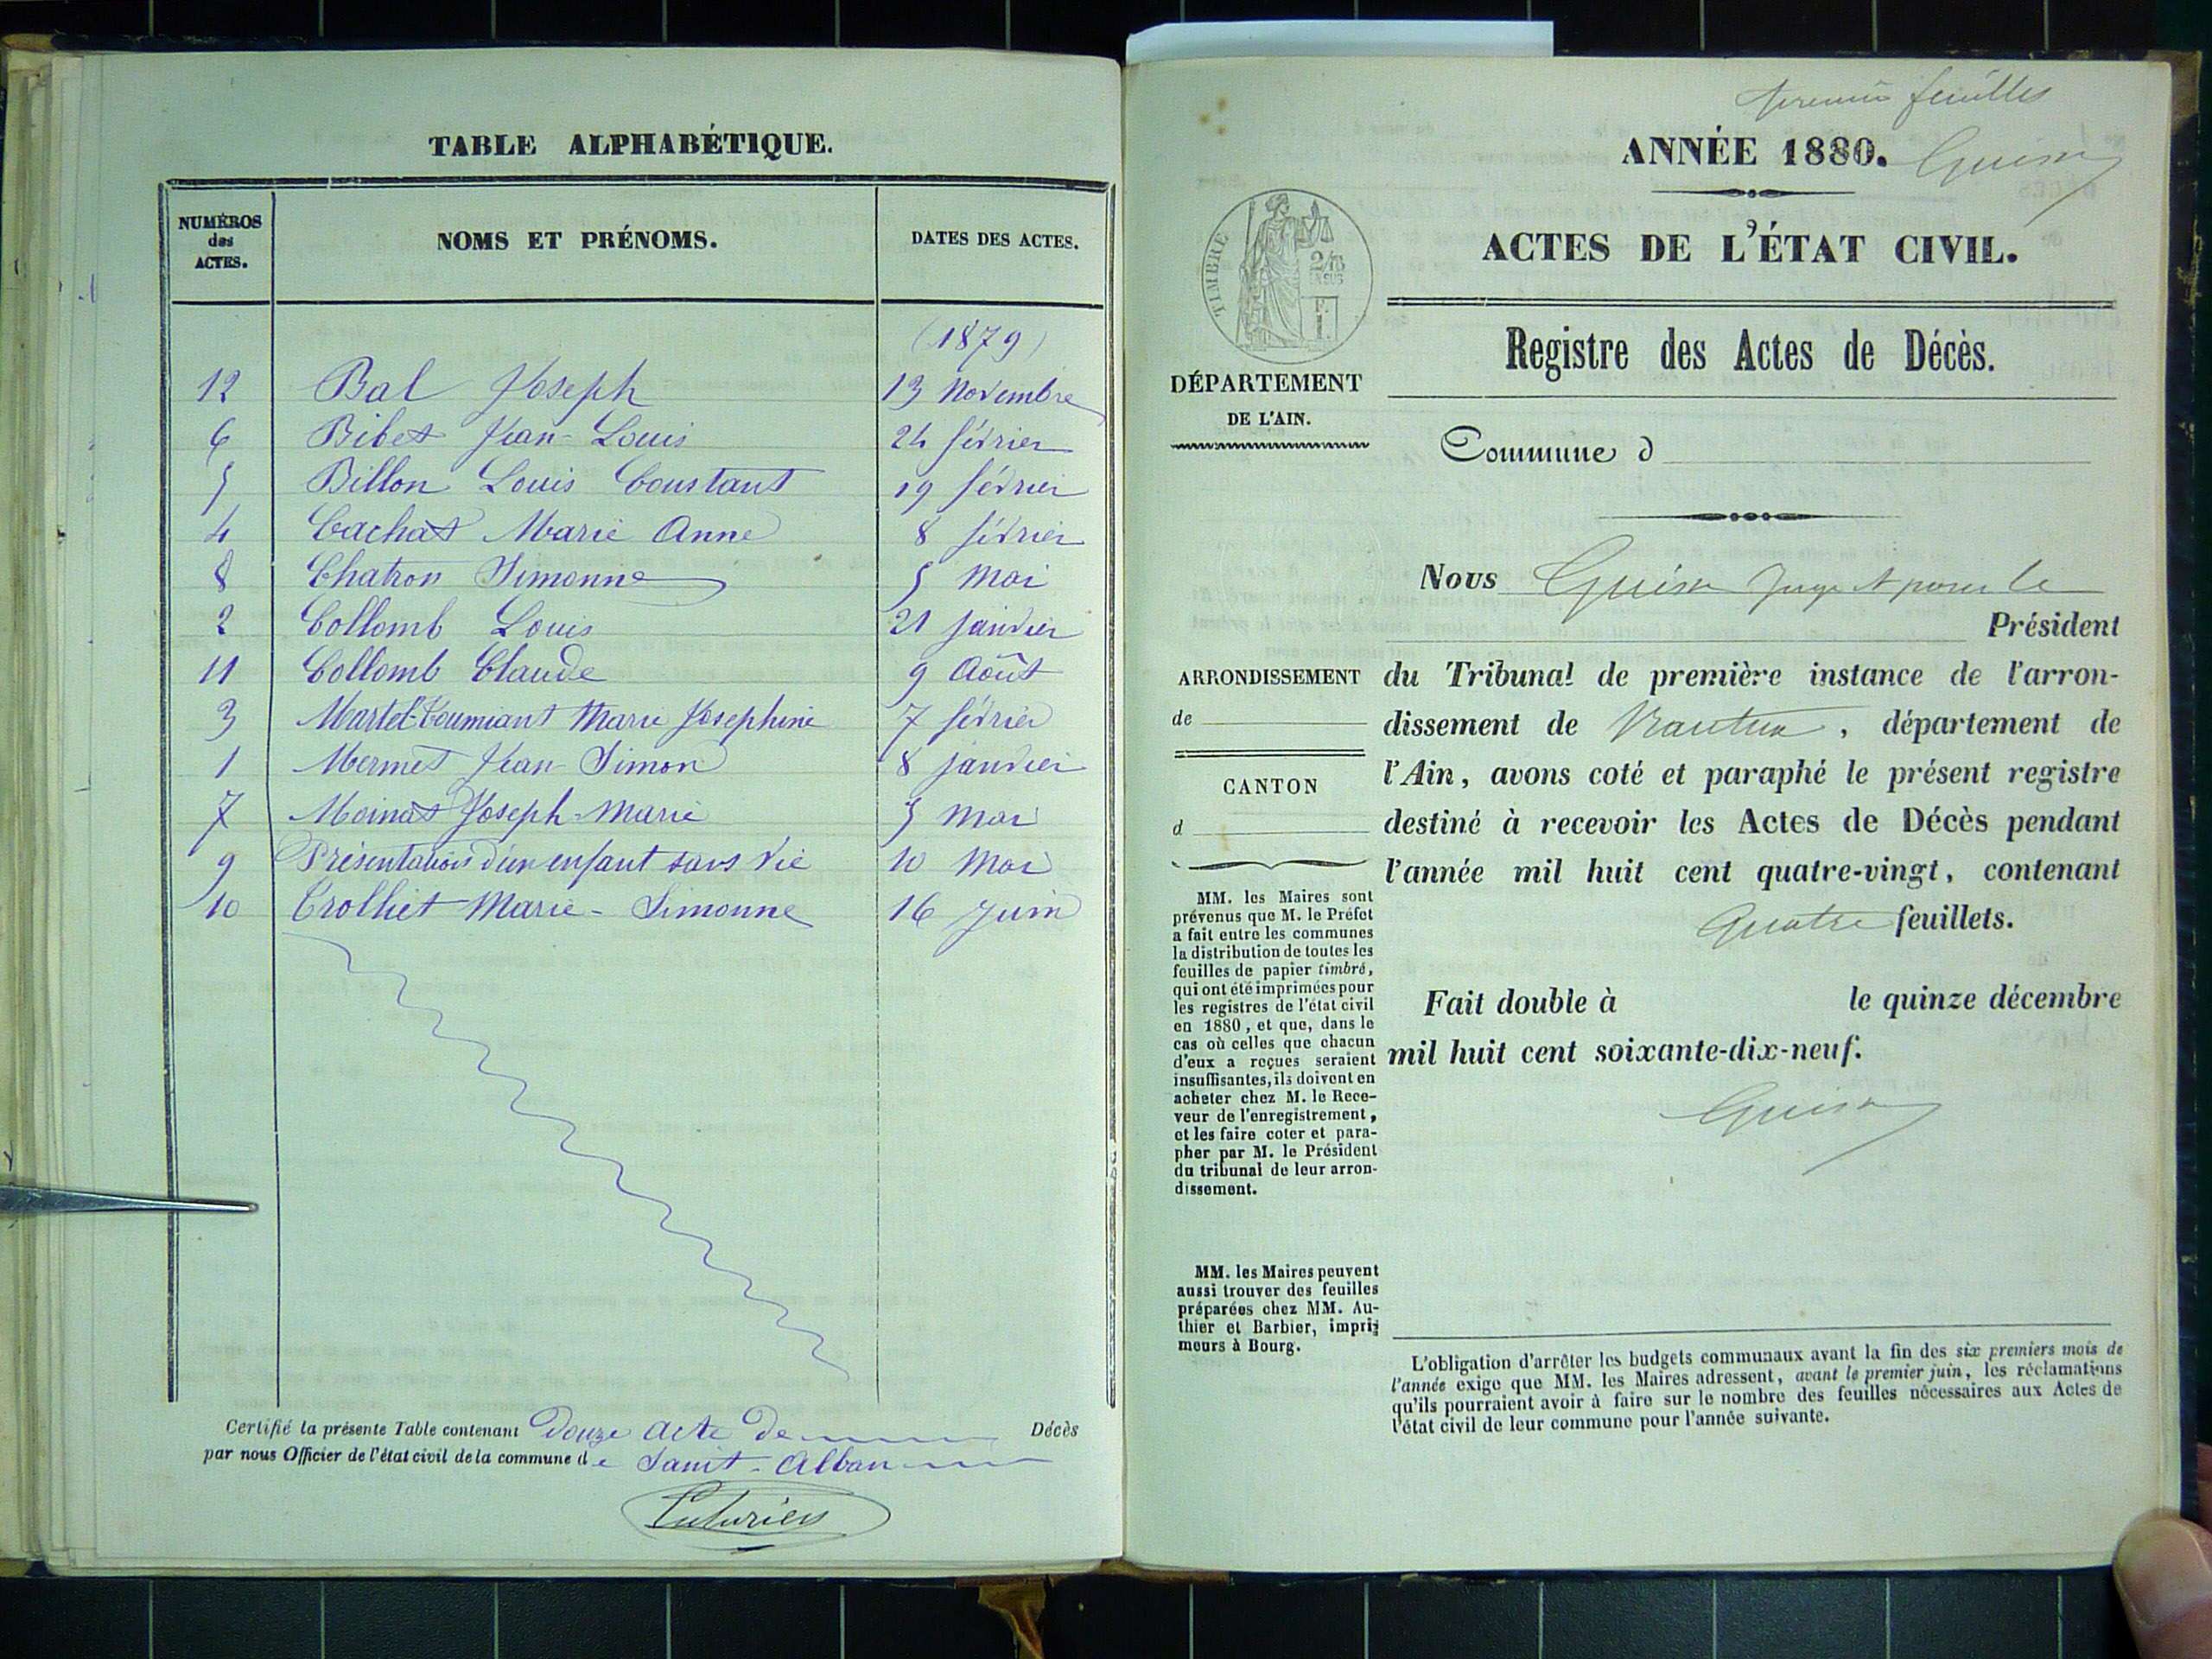 TABLE ALPHABÉTIQUE.
NUMÉROS des ACTES. NOMS ET PRÉNOMS. DATES DES ACTES.
(1879)
12 Bal Joseph 13 Novembre
6 Bibet Jean-Louis 24 février
5 Billon Louis Constant 19 février
4 Cachat Marie Anne 8 février
8 Chatron Simonne 5 Mai
2 Collomb Louis 21 janvier
11 Collomb Claude 9 Août
3 Martel- Marie Josephine 7 février
1 Mermet Jean-Simon 8 janvier
7 Moinat Joseph-Marie 5 Mai
9 Présentation d'un enfant sans vie 10 Mai
10 Trolliet Marie-Simonne 16 Juin
Certifié la présente Table contenant Douze acte de Décès
par nous Officier de l'état civil de la commune de Saint-Alban
feuillet
ANNÉE 1880.
ACTES DE L'ÉTAT CIVIL.
TIMBRE
2/10 EN SUS
F. 1.
Registre des Actes de Décès.
DÉPARTEMENT
DE L'AIN.
Commune d
Nous Juge pour le
Président
du Tribunal de première instance de l'arron-
dissement de Nantua, département de
l'Ain, avons coté et paraphé le présent registre
destiné à recevoir les Actes de Décès pendant
l'année mil huit cent quatre-vingt, contenant
Quatre feuillets.
Fait double à le quinze décembre
mil huit cent soixante-dix-neuf.
ARRONDISSEMENT
de
CANTON
d
MM. les Maires sont
prévenus que M. le Préfet
a fait entre les communes
la distribution de toutes les
feuilles de papier timbré,
qui ont été imprimées pour
les registres de l'état civil
en 1880, et que, dans le
cas où celles que chacun
d'eux a reçues seraient
insuffisantes, ils doivent en
acheter chez M. le Rece-
veur de l'enregistrement,
et les faire coter et para-
pher par M. le Président
du tribunal de leur arron-
dissement.
MM. les Maires peuvent
aussi trouver des feuilles
préparées chez MM. Au-
thier et Barbier, impri-
meurs à Bourg.
L'obligation d'arrêter les budgets communaux avant la fin des six premiers mois de
l'année exige que MM. les Maires adressent, avant le premier juin, les réclamations
qu'ils pourraient avoir à faire sur le nombre des feuilles nécessaires aux Actes de
l'état civil de leur commune pour l'année suivante.